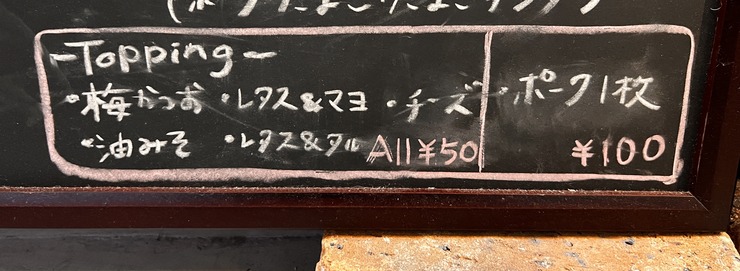 -Topping-
・梅かつお ・レタス&マヨ ・チーズ
・油みそ ・レタス&タル All ¥50
・ポーク1枚
¥100